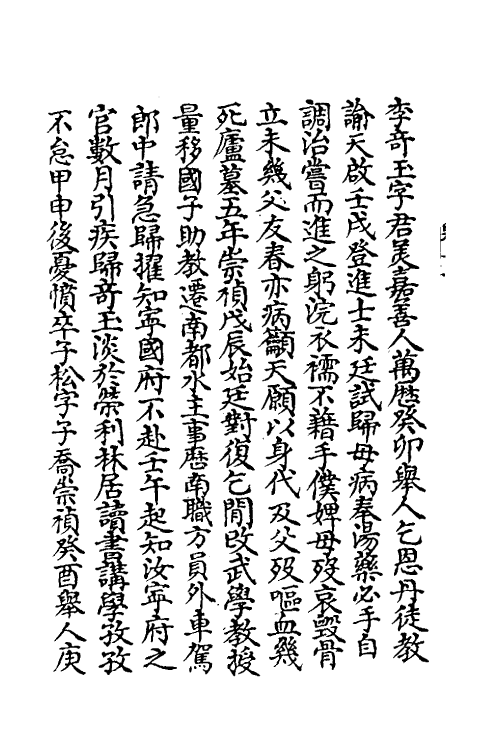 李竒玉字君美嘉善人萬厯癸卯舉人乞恩丹徒教
諭天啟壬戌登進士未廷試歸母病奉湯藥必手自
調治嘗而進之躬浣衣襦不藉手僕婢母歿哀毀骨
立未幾父友春亦病籲天願以身代及父歿嘔血幾
死廬墓五年崇禎戊辰始廷對復乞閒改武學教授
量移國子助教遷南都水主事厯南職方員外車駕
郎中請急歸擢知寧國府不赴壬午起知汝寧府之
官數月引疾歸竒玉淡於榮利林居讀書講學孜孜
不怠甲申後憂憤卒子松字子喬崇禎癸酉舉人庚